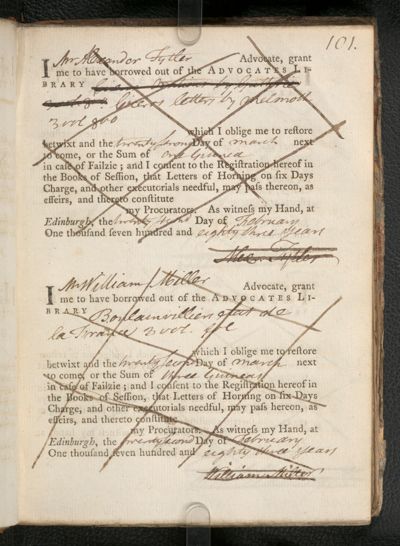 101.
I Mr Alexander Tytler Advocate, grant
me to have borrowed out of the ADVOCATES LI-
BRARY
Cicero's letters by Melmoth
3 vol 8vo
which I oblige me to restore
betwixt and the twenty second Day of march next
to come, or the Sum of one Guinea
in case of Failzie; and I consent to the Registration hereof in
the Books of Session, that Letters of Horning on six Days
Charge, and other executorials needful, may pass thereon, as
effeirs, and thereto constitute
my Procurators. As witness my Hand, at
Edinburgh, the twenty second Day of February
One thousand seven hundred and eighty three years
Alex. Tytler
I Mr William Miller Advocate, grant
me to have borrowed out of the ADVOCATES LI-
BRARY Boulainvilliers etat de
la France 3 vol. fol
which I oblige me to restore
betwixt and the twenty second Day of march next
to come, or the Sum of three Guineas
in case of Failzie; and I consent to the Registration hereof in
the Books of Session, that Letters of Horning on six Days
Charge, and other executorials needful, may pass thereon, as
effeirs, and thereto constitute
my Procurators. As witness my Hand, at
Edinburgh, the twenty second Day of February
One thousand seven hundred and eighty three years
William Miller